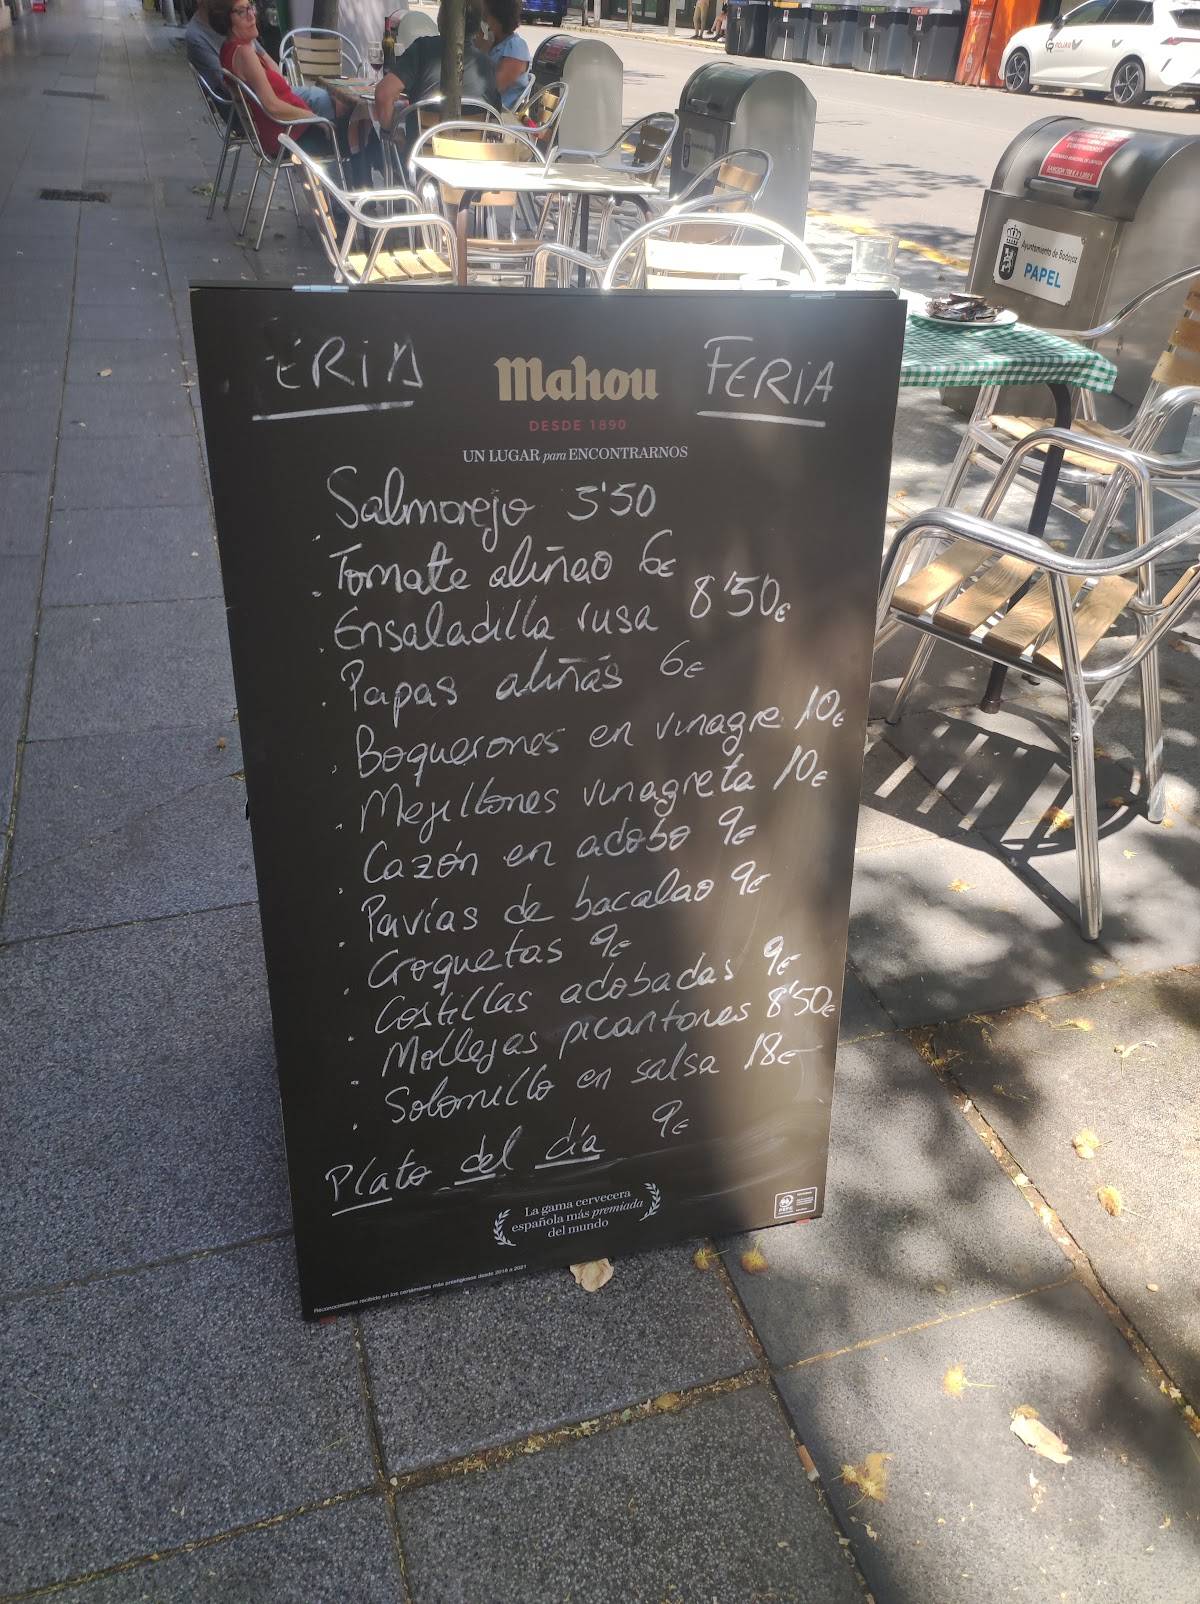 ERIA
FERIA
Mahou
DESDE 1890
UN LUGAR para ENCONTRARNOS
Salmorejo 5'50
Tomate aliñao 6€
Ensaladilla rusa 8'50€
Papas aliñás 6€
Boquerones en vinagre 10€
Mejillones vinagreta 10€
Cazón en adobo 9€
Pavías de bacalao 9€
Croquetas 9€
Costillas adobadas 9€
Mollejas picantonas 8'50€
Solomillo en salsa 18€
Plato del día 9€
La gama cervecera
española más premiada
del mundo
Reconocimiento recibido en los certámenes más prestigiosos desde 2018 a 2021
Ayuntamiento de Badajoz
PAPEL